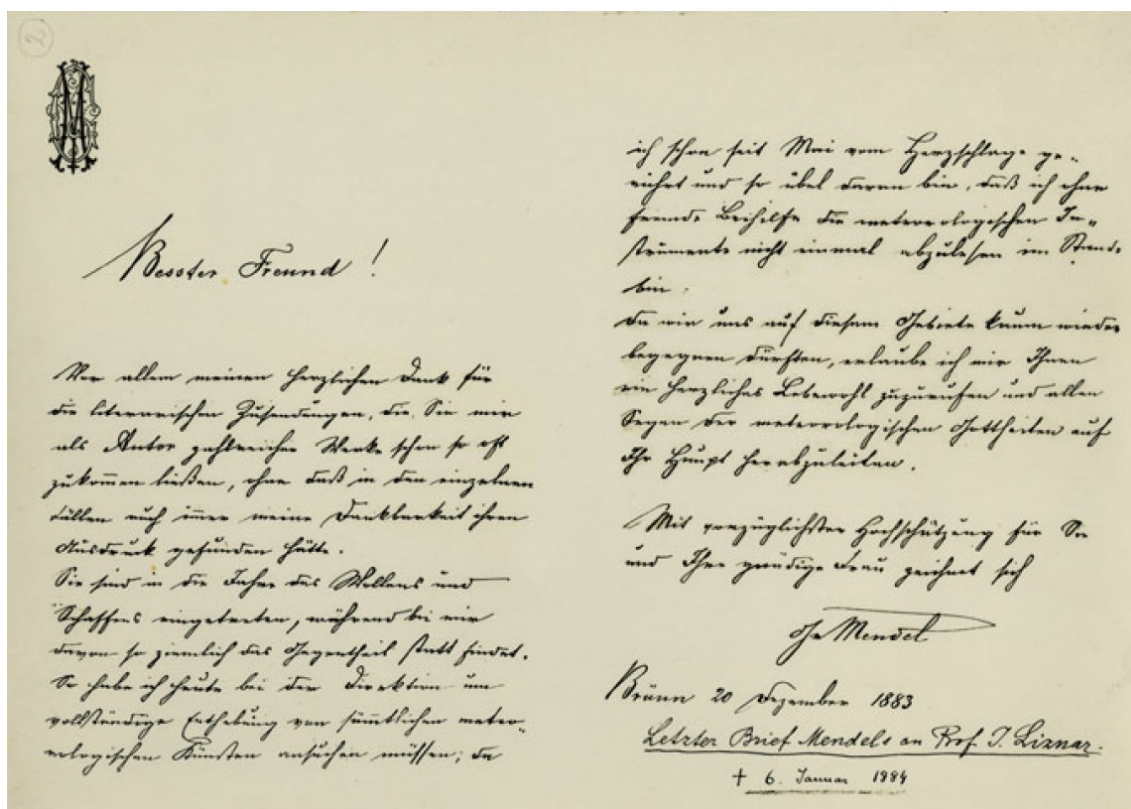 2
Besster Freund!
Vor allem meinen herzlichen Dank für
die literarischen Zusendungen, die Sie mir
als Autor zahlreicher Werke schon so oft
zukommen ließen, ohne daß in den einzelnen
Fällen auch immer meine Dankbarkeit ihren
Ausdruck gefunden hätte.
Sie sind in die Jahre des Wollens und
Schaffens eingetreten, während bei mir
davon so ziemlich das Gegentheil statt findet.
So habe ich heute bei der Direktion um
vollständige Enthebung von sämmtlichen meteor-
ologischen Künsten ansuchen müssen; da
ich schon seit Mai vom Herzschlage ge-
rührt und so übel daran bin, daß ich ohne
fremde Beihilfe die meteorologischen In-
strumente nicht einmal abzulesen im Stande
bin.
Da wir uns auf diesem Gebiete kaum wieder
begegnen dürften, erlaube ich mir Ihnen
ein herzliches Lebewohl zuzurufen und allen
Segen der meteorologischen Gottheiten auf
Ihr Haupt herabzuleiten.
Mit vorzüglichster Hochschätzung für Sie
und Ihre gnädige Frau zeichnet sich
Gr Mendel
Brünn 20 Dezember 1883
Letzter Brief Mendels an Prof. J. Liznar.
† 6. Januar 1884